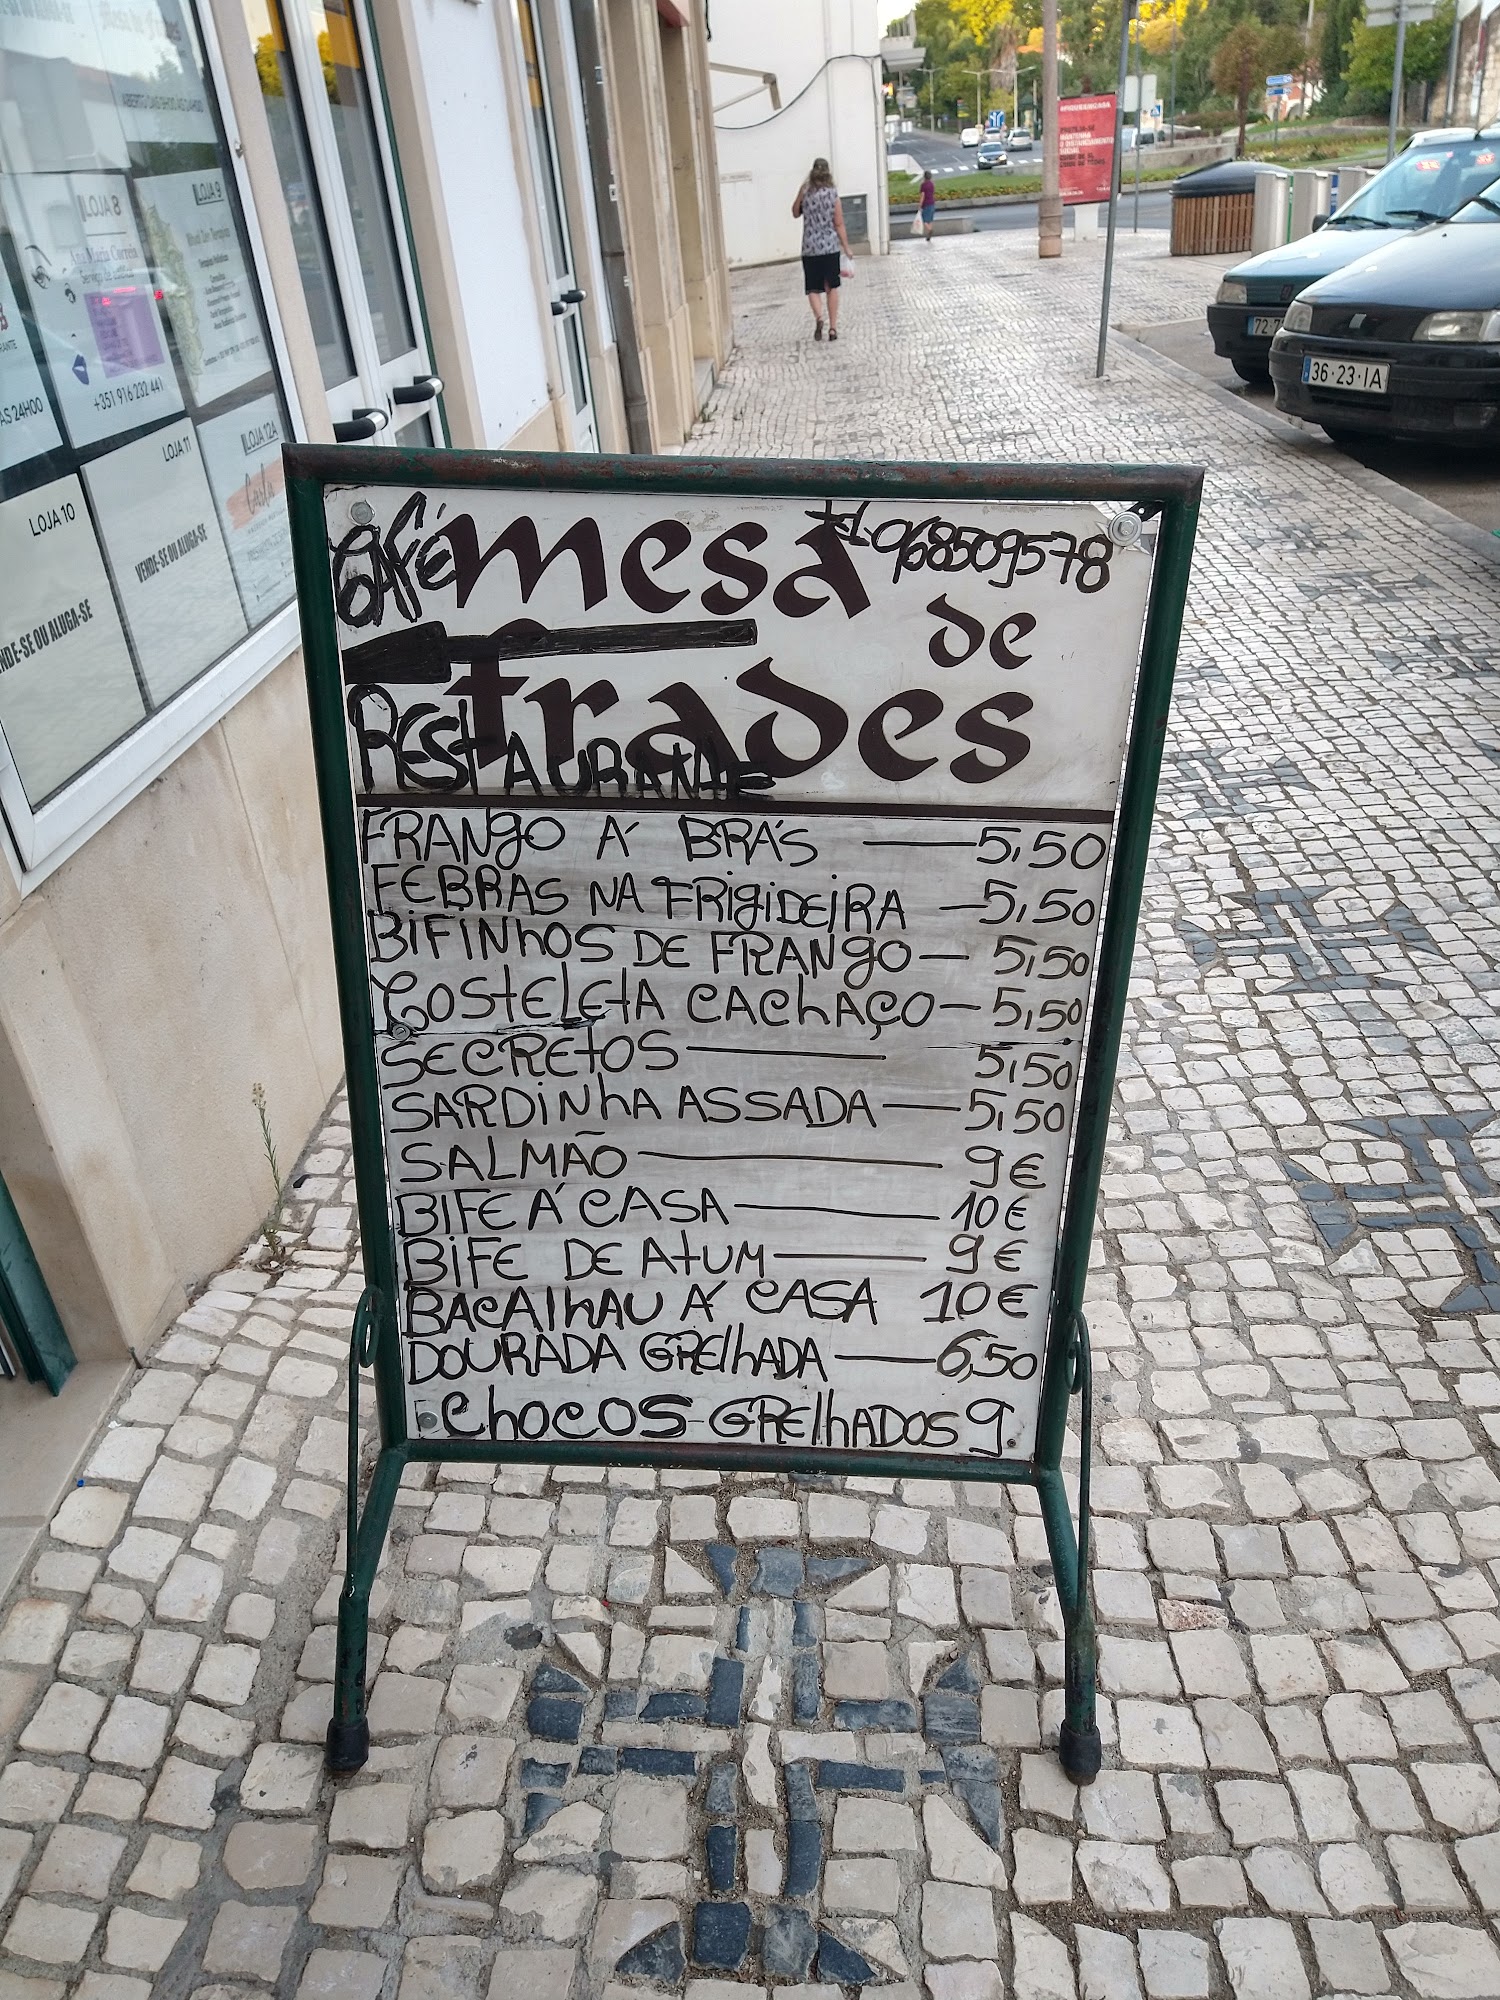 LOJA 8
Ana Maria Correia
+351 916 232 441
LOJA 9
AS 24H00
LOJA 10
NDE-SE OU ALUGA-SE
LOJA 11
VENDE-SE OU ALUGA-SE
LOJA 12A
Carla
72-7
36·23·IA
CAFÉ mesa tel. 968509578
de
frades
RESTAURANTE
FRANGO Á BRÁS — 5,50
FEBRAS NA FRIGIDEIRA — 5,50
BIFINHOS DE FRANGO — 5,50
COSTELETA CACHAÇO — 5,50
SECRETOS — 5,50
SARDINHA ASSADA — 5,50
SALMÃO — 9€
BIFE Á CASA — 10€
BIFE DE ATUM — 9€
BACALHAU Á CASA 10€
DOURADA GRELHADA — 6,50
CHOCOS GRELHADOS 9